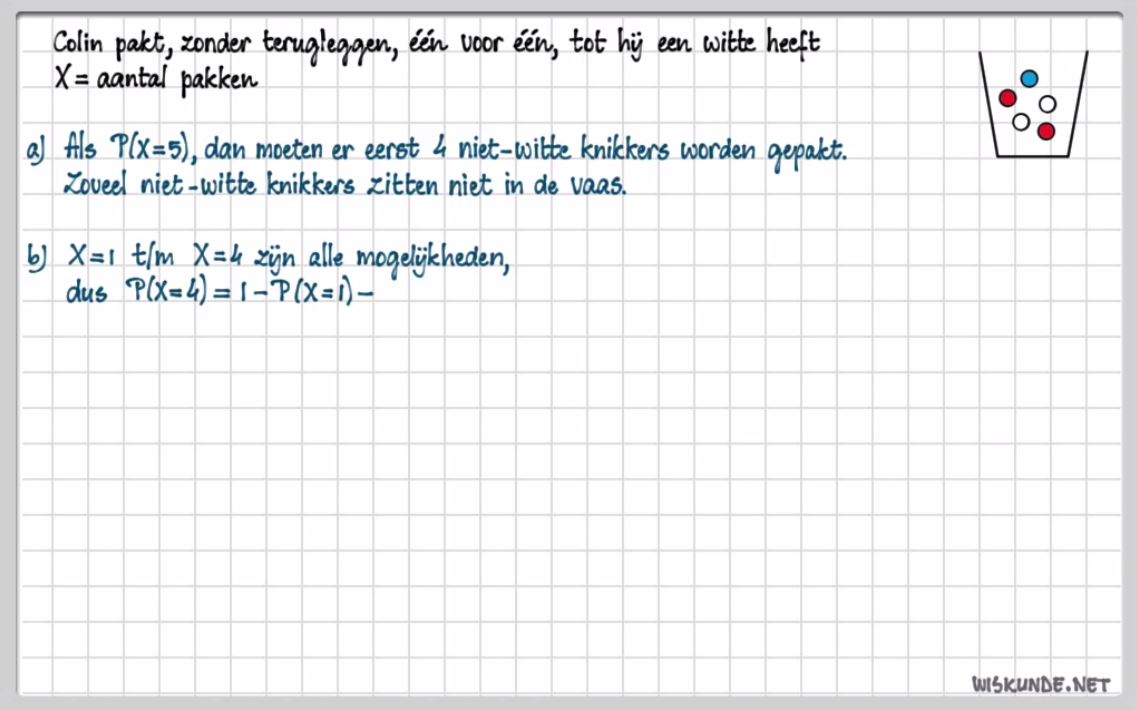 Colin pakt, zonder terugleggen, één voor één, tot hij een witte heeft
X = aantal pakken
a) Als P(X=5), dan moeten er eerst 4 niet-witte knikkers worden gepakt.
Zoveel niet-witte knikkers zitten niet in de vaas.
b) X=1 t/m X=4 zijn alle mogelijkheden,
dus P(X=4) = 1 - P(X=1) -
WISKUNDE.NET